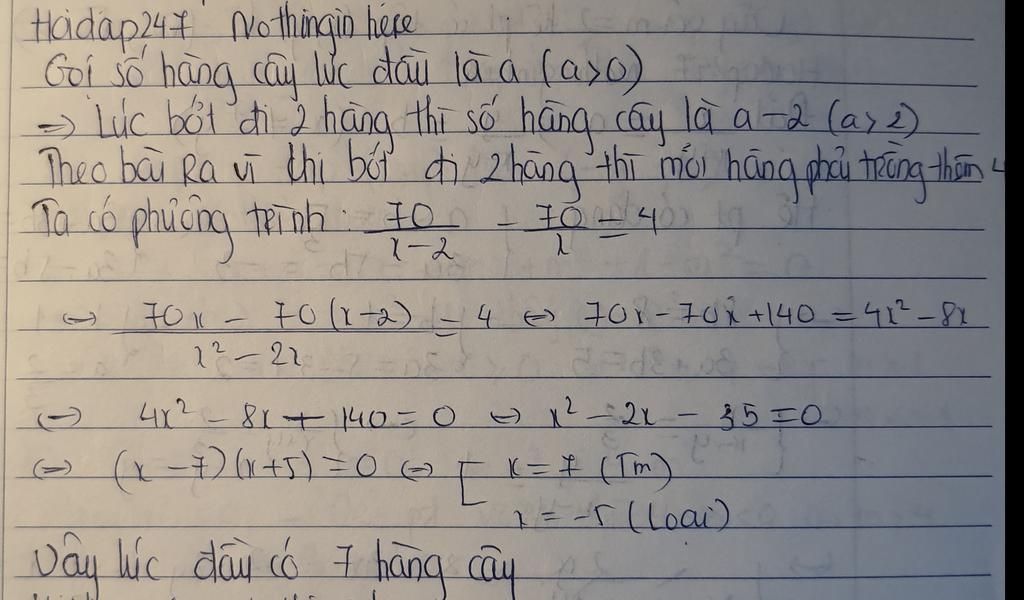 Hoidap247 Nothinginhere
Gọi số hàng cây lúc đầu là a (a>0)
=> Lúc bớt đi 2 hàng thì số hàng cây là a-2 (a>2)
Theo bài Ra vì khi bớt đi 2 hàng thì mỗi hàng phải trồng thêm 4
Ta có phương trình: 70/(x-2) - 70/x = 4
<=> (70x - 70(x-2))/(x² - 2x) = 4 <=> 70x - 70x + 140 = 4x² - 8x
<=> 4x² - 8x - 140 = 0 <=> x² - 2x - 35 = 0
<=> (x-7)(x+5) = 0 <=> [ x = 7 (Tm)
x = -5 (Loại)
Vậy lúc đầu có 7 hàng cây